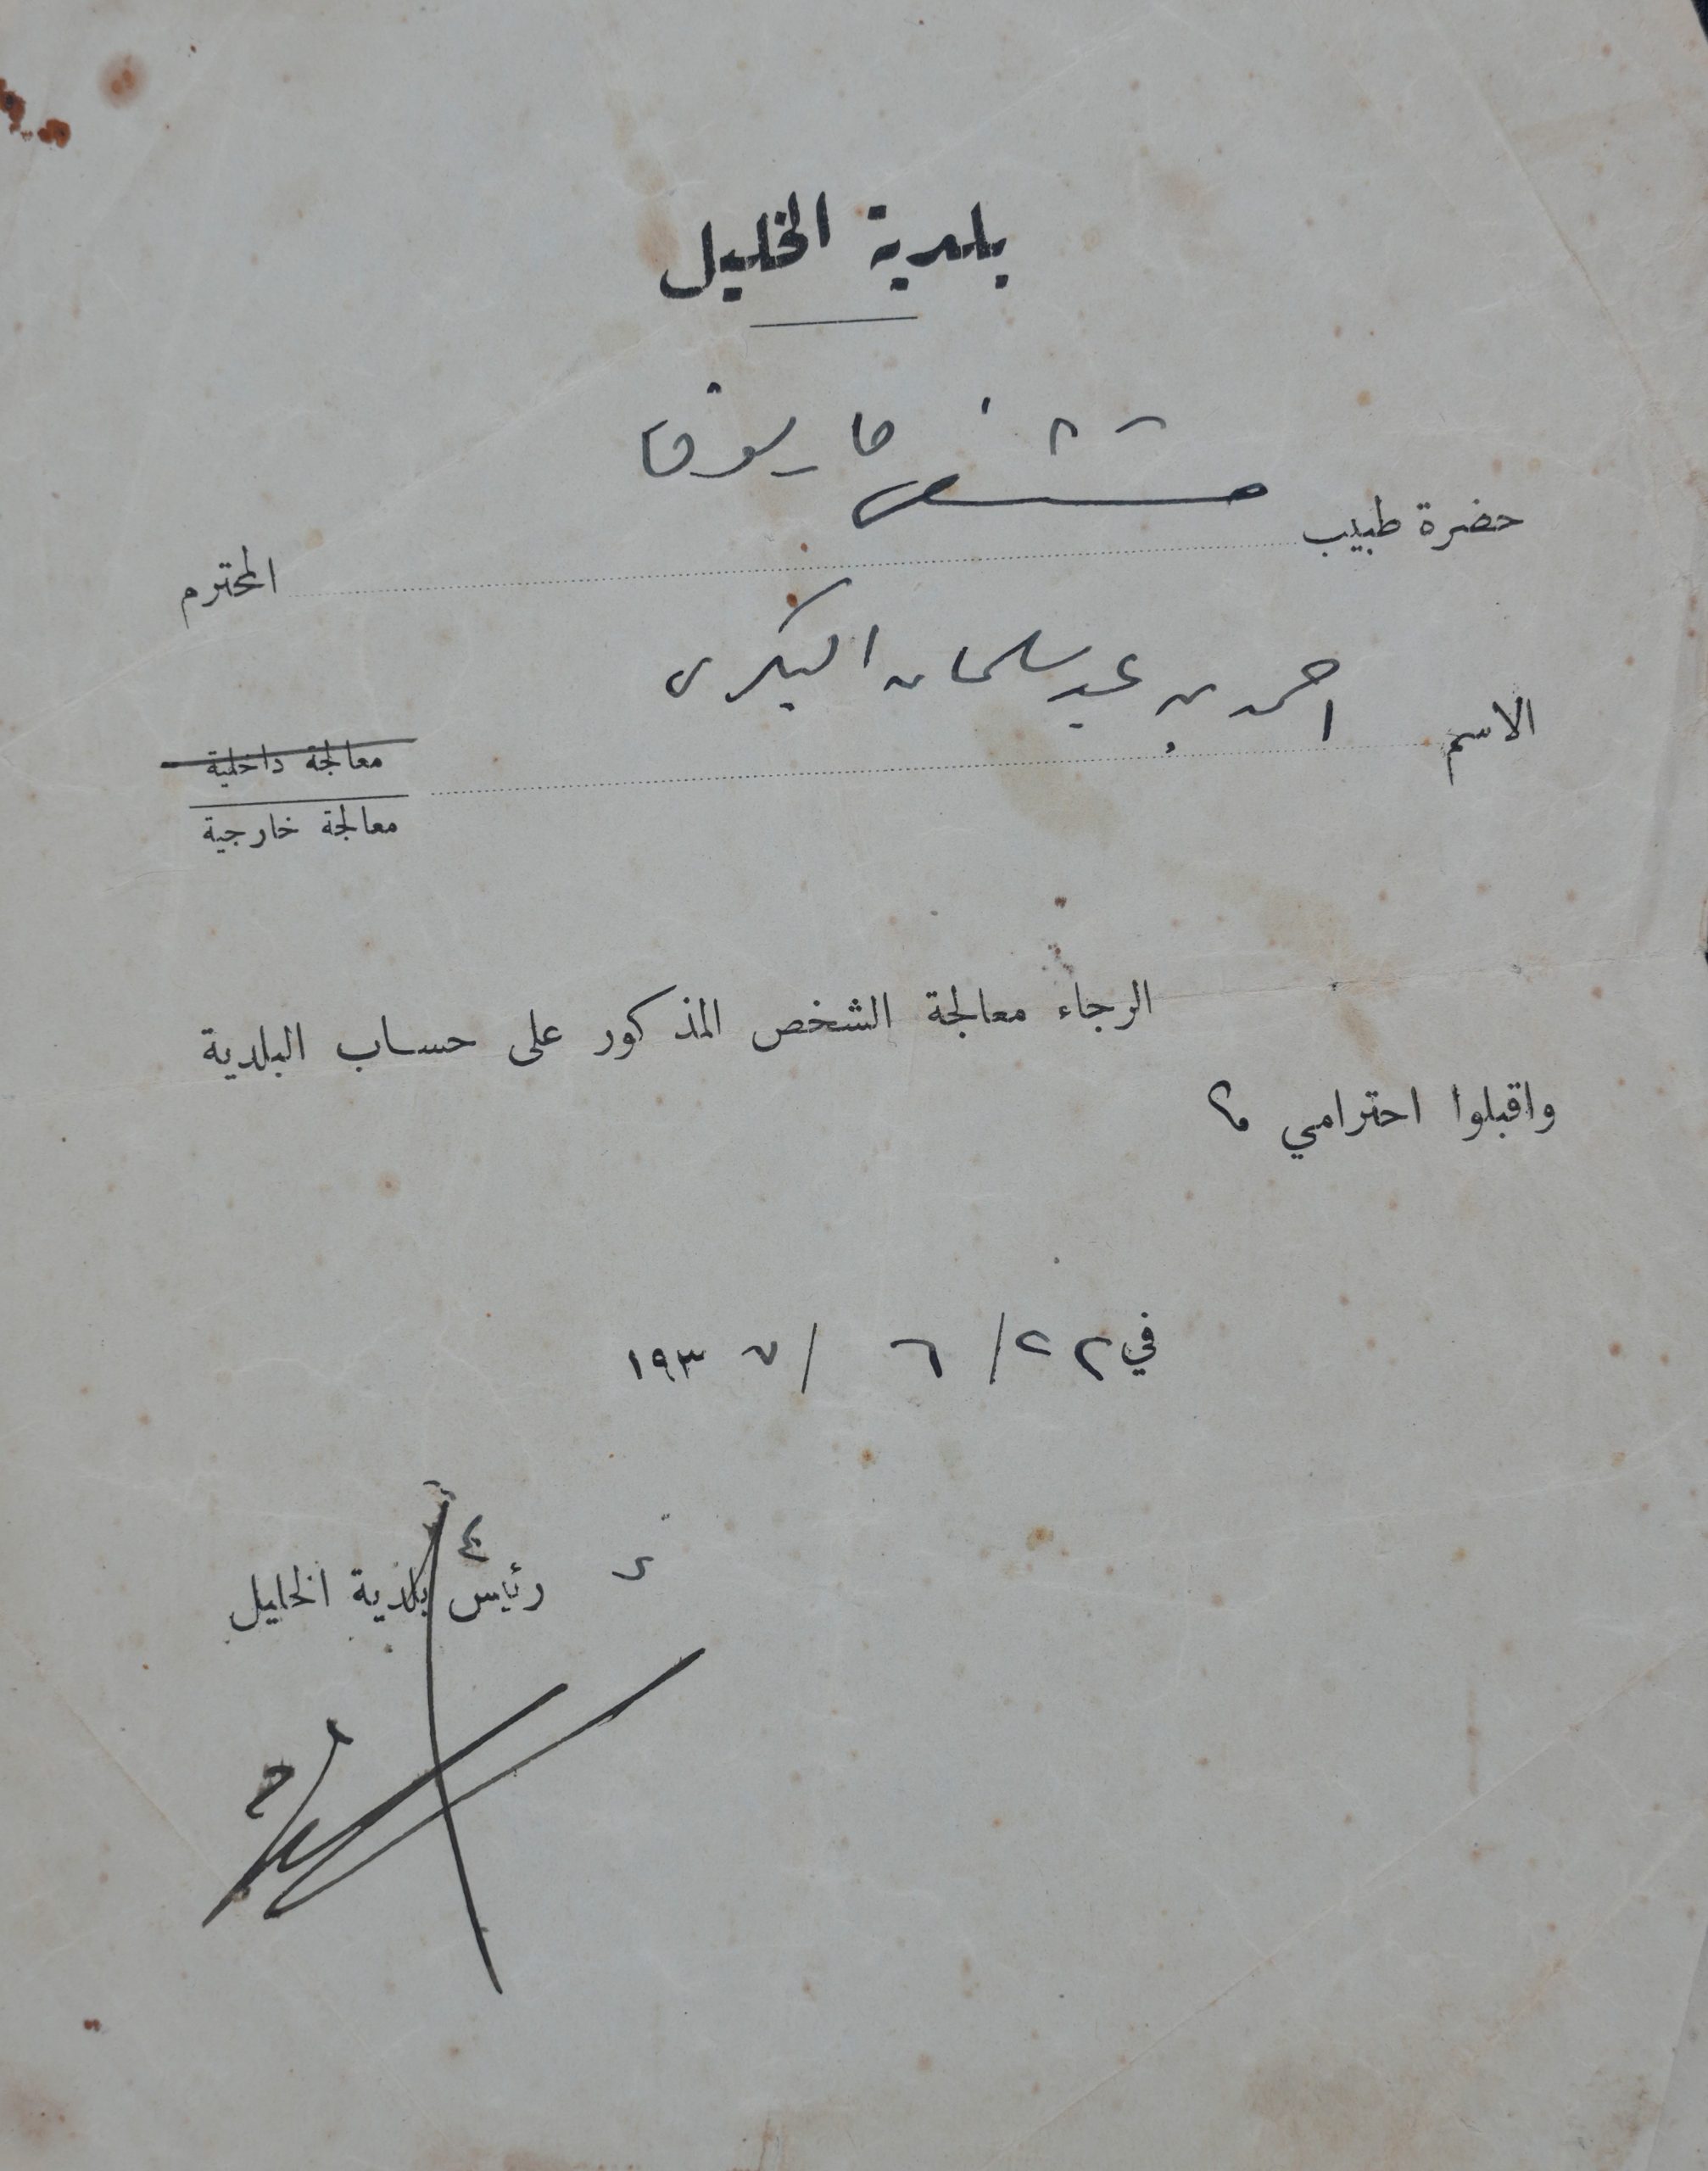 بلدية الخليل
حضرة طبيب مستشفى المحترم
الاسم احمد بن عبد سلمان البكري
معالجة داخلية
معالجة خارجية
الرجاء معالجة الشخص المذكور على حساب البلدية
واقبلوا احترامي
في ٢٢ / ٦ / ١٩٣٧
رئيس بلدية الخليل